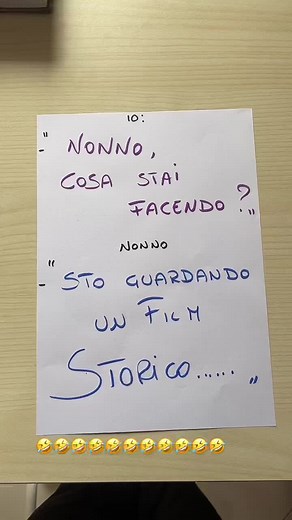 IO:
- " NONNO,
COSA STAI
FACENDO ? "
NONNO
- " STO GUARDANDO
UN FILM
STORICO...... "
🤣🤣🤣🤣🤣🤣🤣🤣🤣🤣🤣